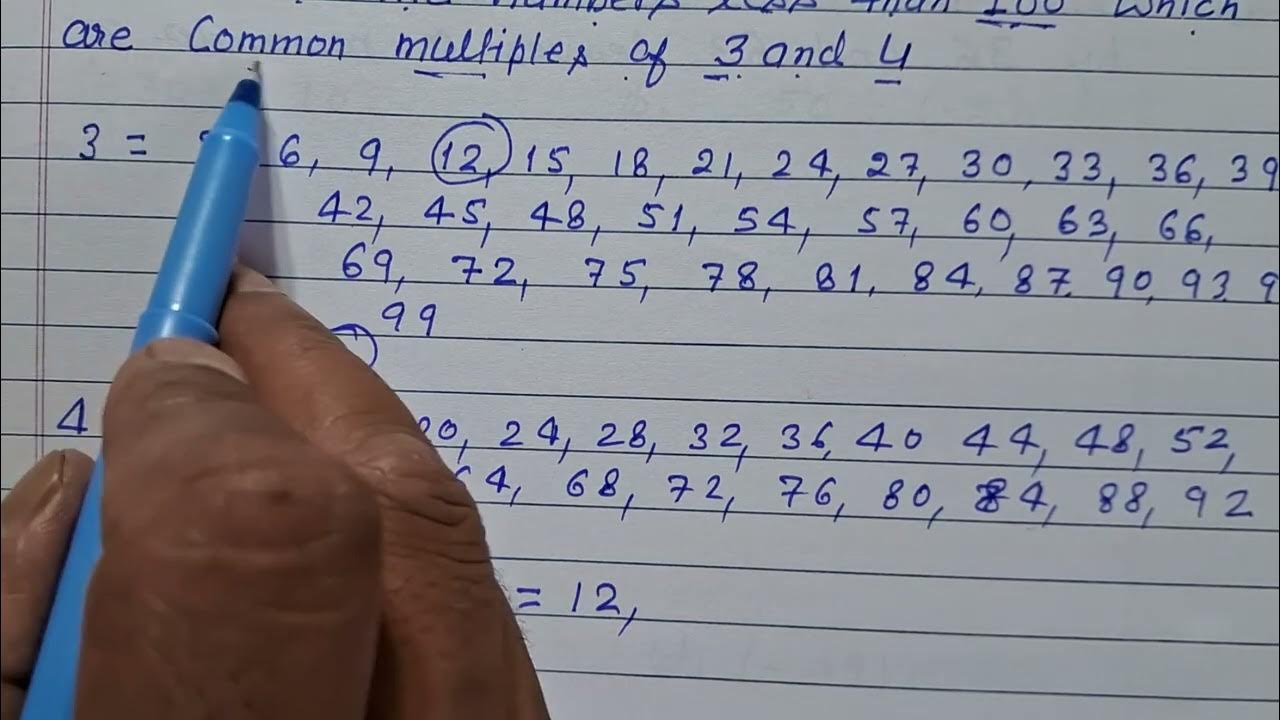 numbers less than 100 which
are Common multiples of 3 and 4
3 = 6, 9, 12, 15, 18, 21, 24, 27, 30, 33, 36, 39
42, 45, 48, 51, 54, 57, 60, 63, 66,
69, 72, 75, 78, 81, 84, 87 90, 93 9
99
4 20, 24, 28, 32, 36, 40 44, 48, 52,
64, 68, 72, 76, 80, 84, 88, 92
= 12,